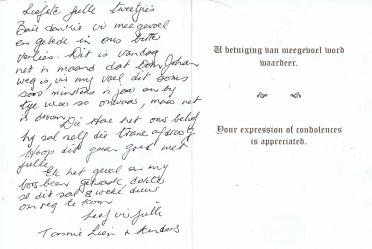 Liefste julle tweetjies
Baie dankie vir meegevoel
en gebede in ons
verlies. Dit is vandag
net 'n maand dat Johan
weg is, vir my voel dit soms
soos minstens 'n jaar en by
tye was so onwaar, maar net
'n droom. Die Here het ons belof
hy sal self die trane afdroog
Hoop dit gaan goed met
julle.
Ek het geval en my
seer
so dit sal 6 weke duur
om reg te kom
Liefs vir julle
Tannie & kinders
U betuiging van meegevoel word
waardeer.
Your expression of condolences
is appreciated.